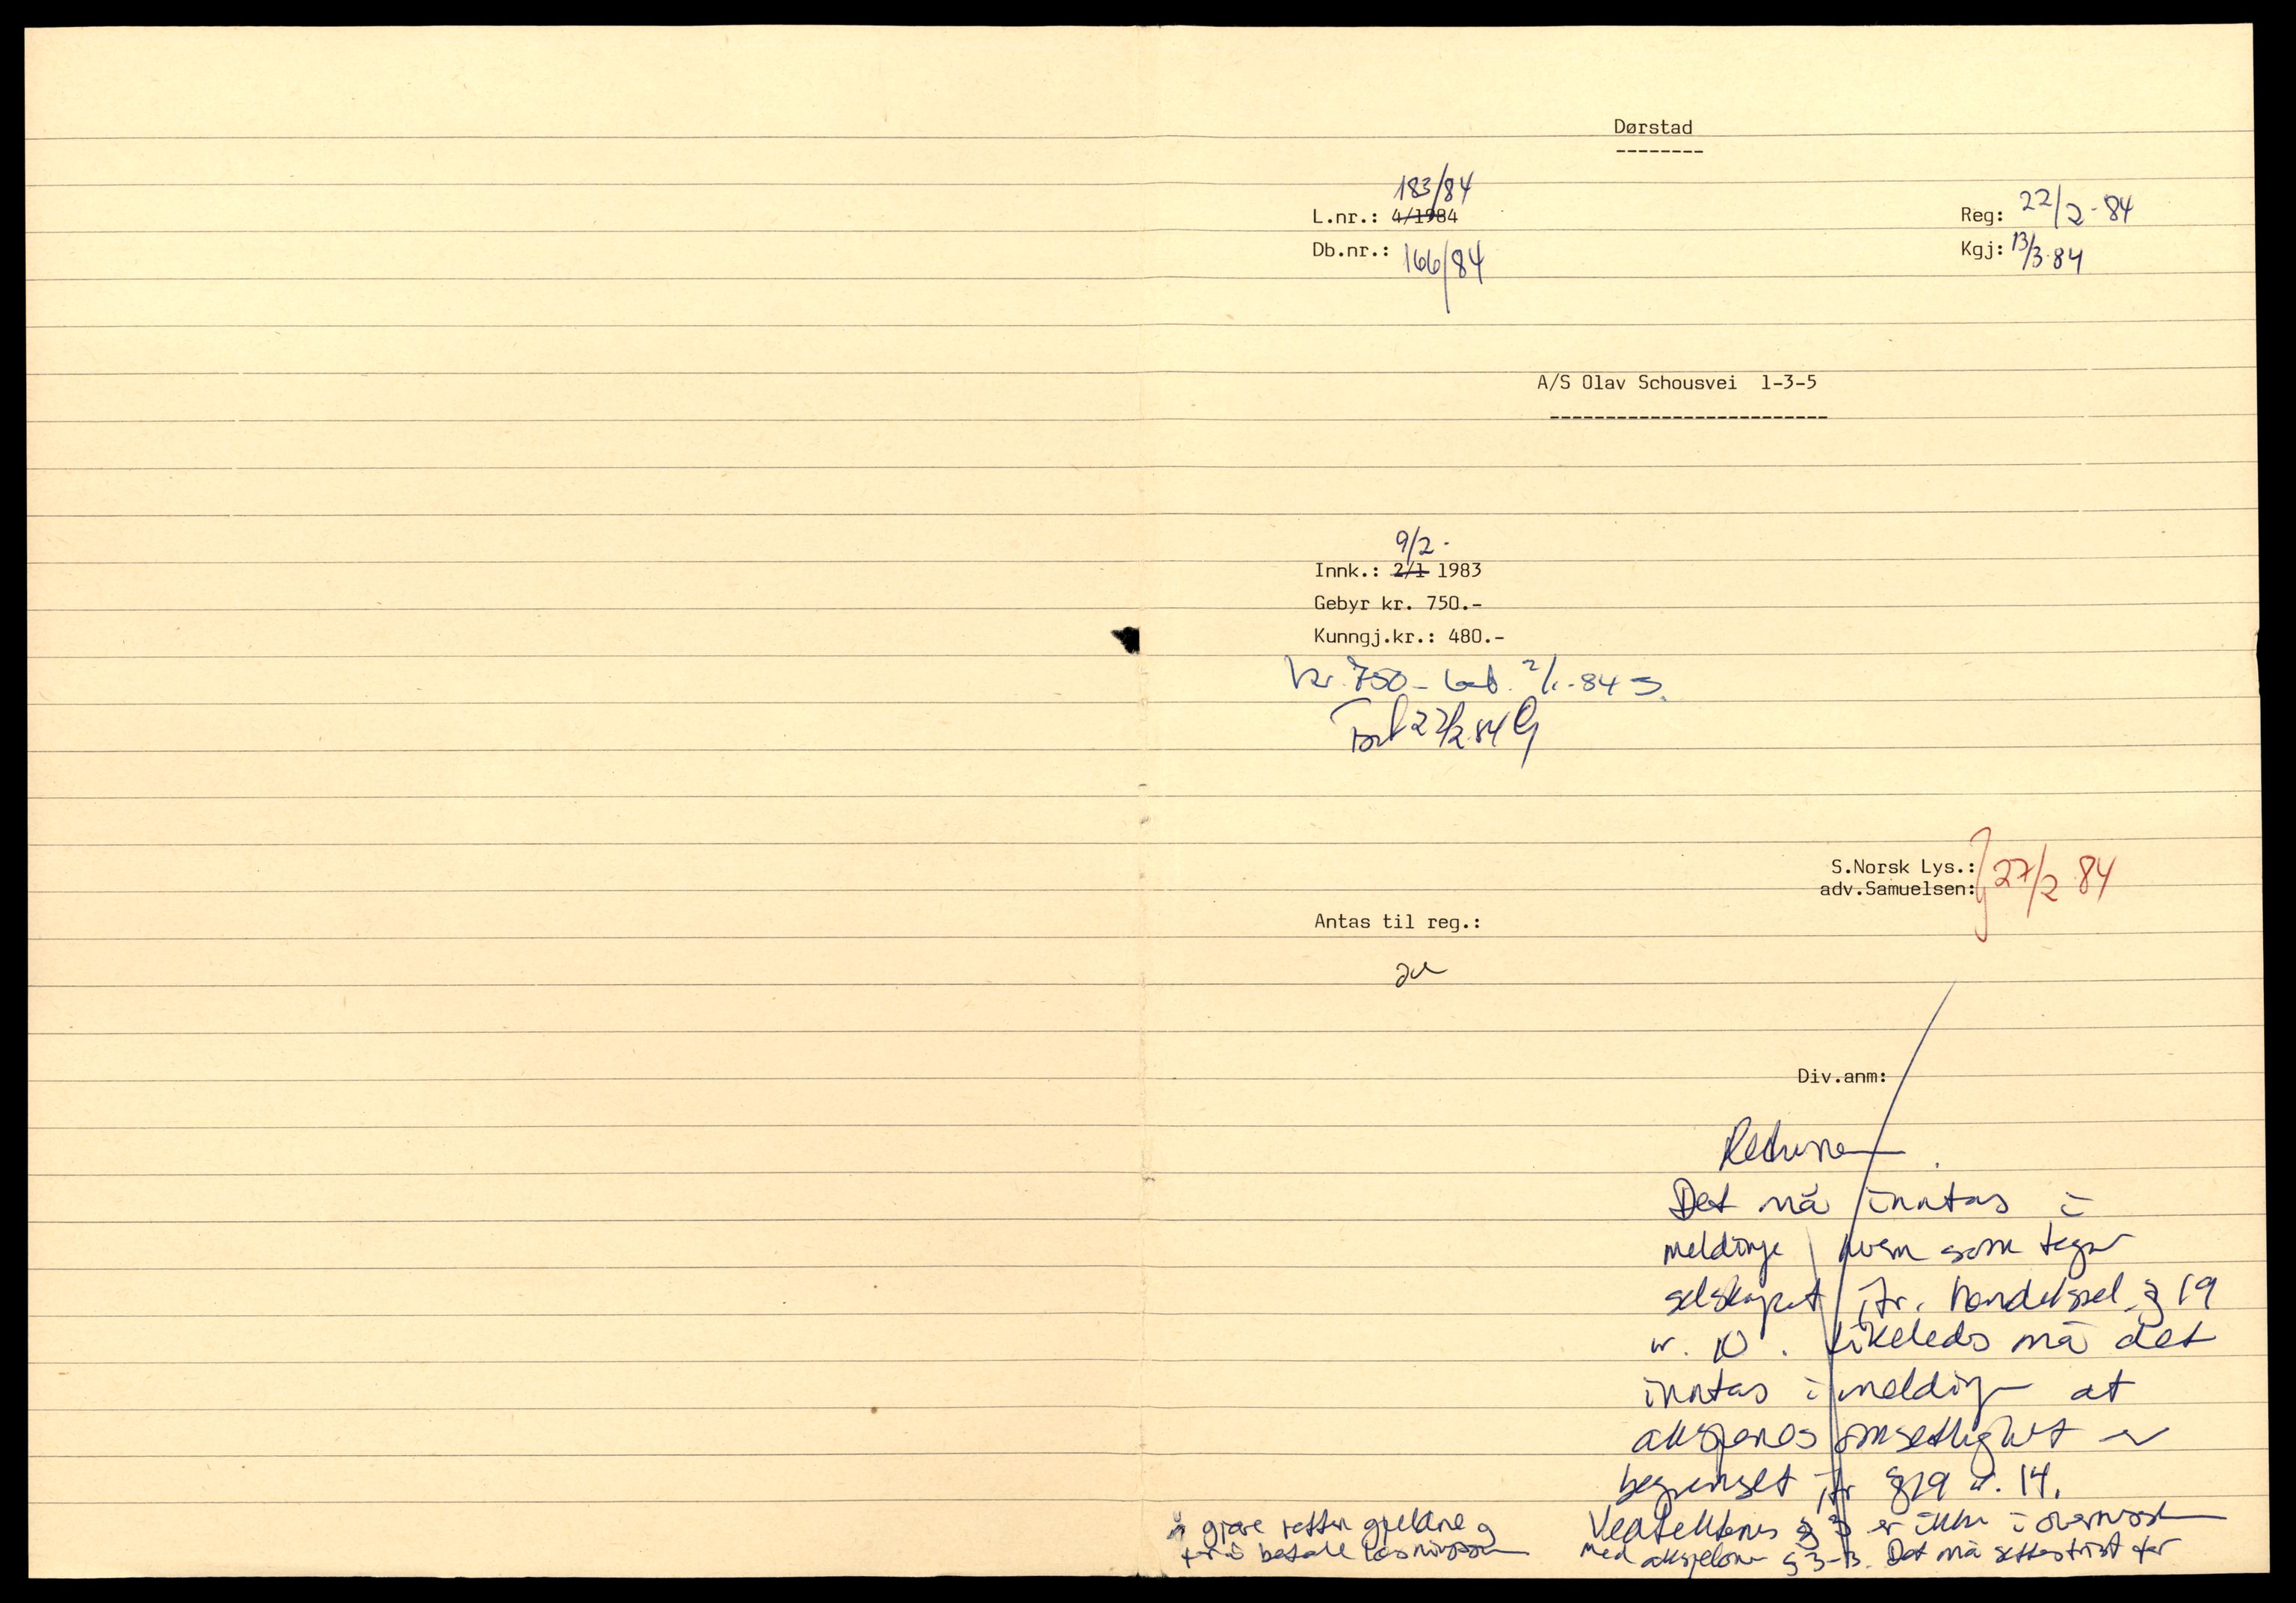 Dørstad
183/84
L.nr.: 4/1984
Reg: 22/2-84
Db.nr.: 166/84
Kgj: 13/3-84
A/S Olav Schousvei 1-3-5
9/2-
Innk.: 2/1 1983
Gebyr kr. 750.-
Kunngj.kr.: 480.-
kr. 750.- bet. 2/1-84 S.
22/2 84
S.Norsk Lys.:
adv.Samuelsen: 27/2 84
Antas til reg.:
Div.anm:
Det må inntas i
meldinge hvem som tegner
selskapet jfr. handelsreg. § 19
nr. 10. Likeledes må det
inntas i meldingen at
aksjenes omsettlighet er
begrenset jfr §19 nr. 14.
Vedtektenes § 3 er ikke i overensst
med aksjeloven § 3-3. Det må settes frist for
å gjøre retten gjeldende og
for å betale løsningssum